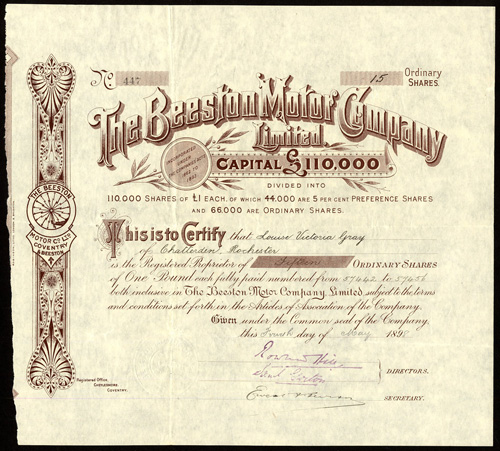 No 447
15 Ordinary
SHARES.
The Beeston Motor Company
Limited.
INCORPORATED
UNDER
THE COMPANIES ACTS
1862 TO
CAPITAL £110,000,
DIVIDED INTO
110,000 SHARES OF £1 EACH, OF WHICH 44,000 ARE 5 PER CENT PREFERENCE SHARES
AND 66,000 ARE ORDINARY SHARES.
This is to Certify that Louise Victoria Gray
of Chattenden, Rochester
is the Registered Proprietor of Fifteen ORDINARY SHARES
of One Pound each fully paid numbered from 57442 to 57456
both inclusive in The Beeston Motor Company, Limited, subject to the terms
and conditions set forth in the Articles of Association of the Company.
Given under the Common seal of the Company,
this day of May 189
DIRECTORS.
SECRETARY.
THE BEESTON
MOTOR CO LTD
COVENTRY
& BEESTON.
Registered Office,
CHEYLESMORE,
COVENTRY.